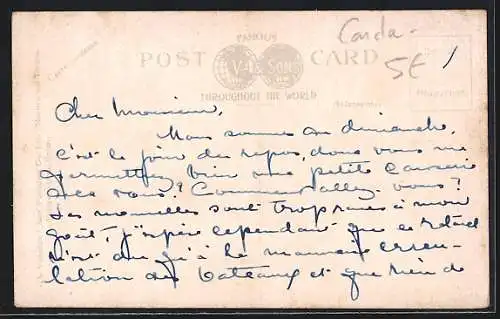 FAMOUS
POST CARD
V & SONS
THROUGHOUT THE WORLD
Carda
5€
Cher Monsieur,
Nous sommes au dimanche,
c'est le jour du repos, donc vous me
permettez bien une petite causerie
avec vous? Comment allez-vous?
Les nouvelles sont trop rares à mon
goût, j'espère cependant que ce retard
n'est dû qu'à la mauvaise circu-
lation des bateaux et que rien de